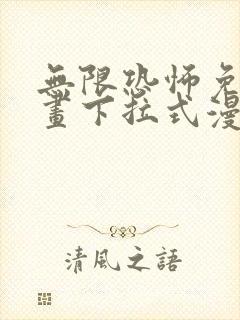 無限恐怖免
畫下拉式漫
清風之語